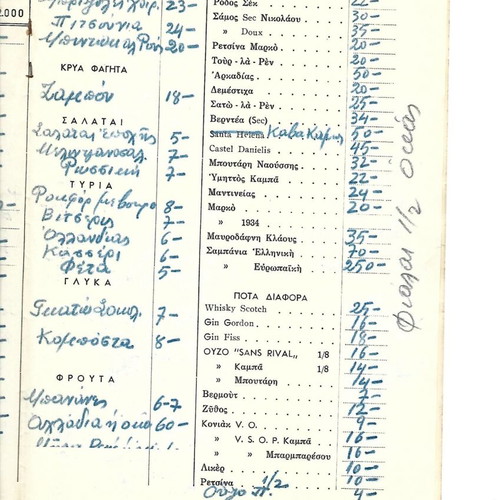 2.000
23-
Πιτσούνια 24-
20-
ΚΡΥΑ ΦΑΓΗΤΑ
Ζαμπόν 18-
ΣΑΛΑΤΑΙ
Σαλάται Εποχής 5-
Μελιτζανοσαλ. 7-
Ρωσσική 7-
ΤΥΡΙΑ
Ροκφόρ με βούτυρο 8-
7-
Ολλανδίας 6-
Κασσέρι 6-
Φέτα 5-
ΓΛΥΚΑ
7-
Κομπόστα 8-
ΦΡΟΥΤΑ
Μπανάνες 6-7
Αχλάδια ή οκά 60-
Ρόδος Σεκ 22-
Σάμος Sec Νικολάου 30-
» Doux 35-
Ρετσίνα Μαρκό 20-
Τούρ-λά-Ρέν 20-
Ἀρκαδίας 50-
Δεμέστιχα 20-
Σατώ-λά-Ρέν 25-
Βερντέα (Sec) 34-
Santa Helena Κάβα Καμπά 50-
Castel Danielis 45-
Μπουτάρη Ναούσσης 32-
Ὑμηττός Καμπᾶ 22-
Μαντινείας 24-
Μαρκό 20-
» 1934
Μαυροδάφνη Κλάους 35-
Σαμπάνια Ἑλληνική 70-
» Εὐρωπαϊκή 250-
ΠΟΤΑ ΔΙΑΦΟΡΑ
Whisky Scotch 25-
Gin Gordon 16-
Gin Fiss 18-
ΟΥΖΟ "SANS RIVAL" 1/8 16-
» Καμπᾶ 1/8 14-
» Μπουτάρη 14-
Βερμούτ 7-
Ζῦθος 12-
Κονιάκ V. O. 9-
» V. S. O. P. Καμπᾶ 16-
» Μπαρμπαρέσου 16-
Λικέρ 10-
Ρετσίνα 1/2 10-
Ούζο Π. 4-
Φιάλαι 1/2 οκάς